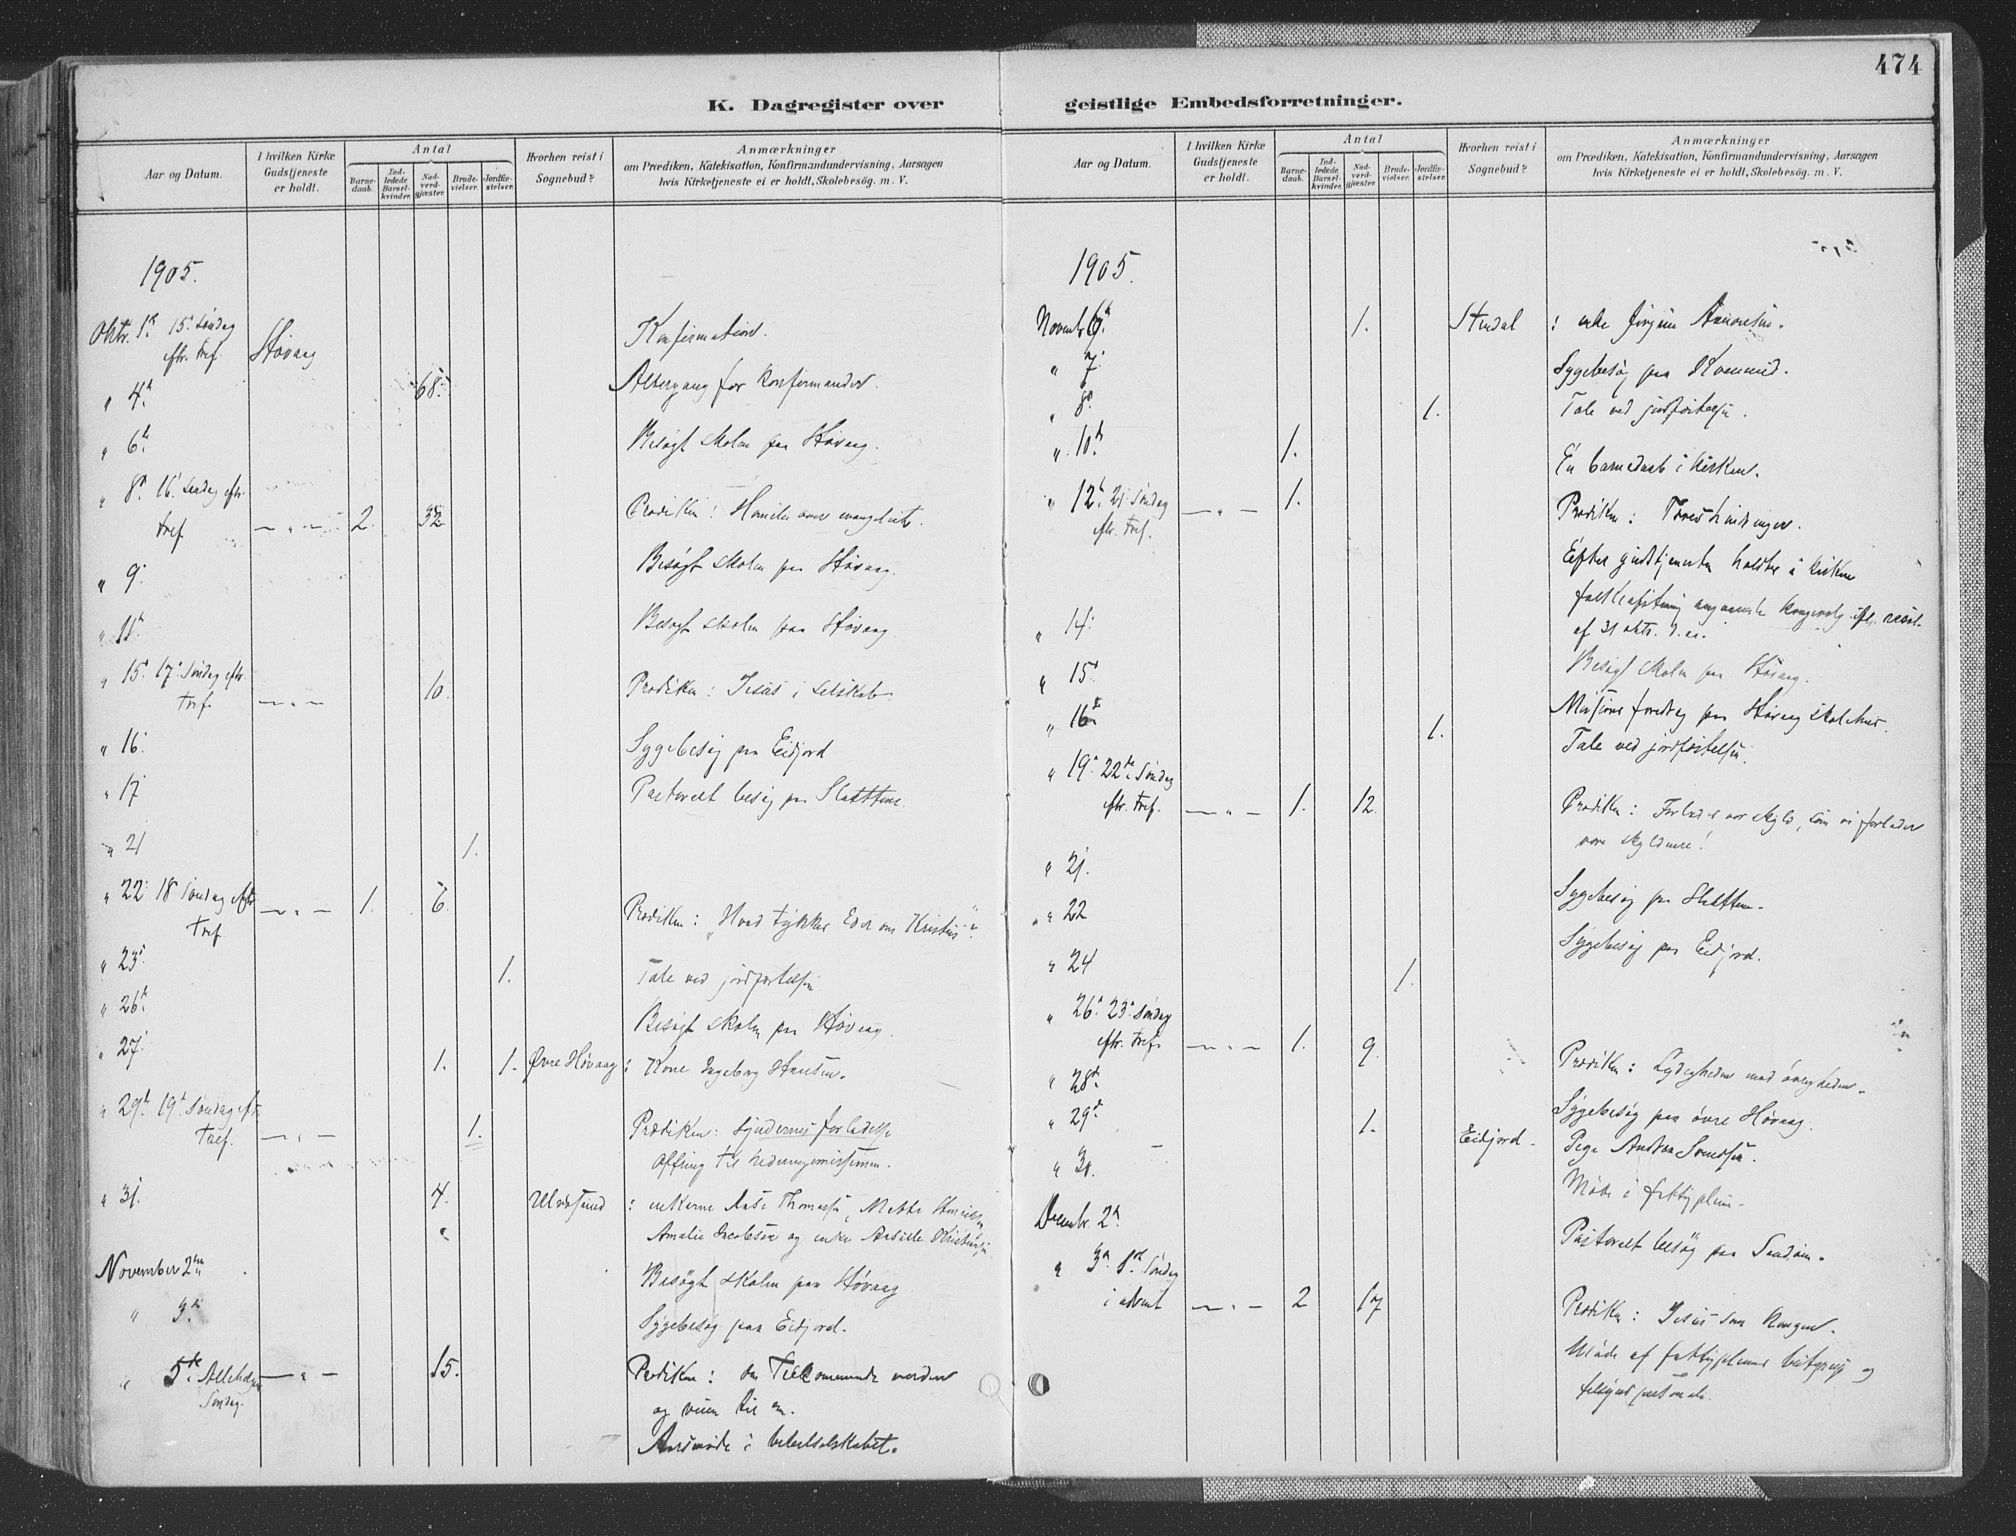 474
K. Dagregister over geistlige Embedsforretninger.
Aar og Datum.
I hvilken Kirke Gudstjeneste er holdt.
Antal
Barne-daab.
Ind-ledede Barsel-kvinder.
Nad-verd-gjæster.
Brude-vielser.
Jordfæ-stelser.
Hvorhen reist i Sognebud?
Anmærkninger
om Prædiken, Katekisation, Konfirmandundervisning, Aarsagen
hvis Kirketjeneste ei er holdt, Skolebesög. m. V.
1905.
Oktr. 1st 15d Søndag eftr. tref. Høvaag Konfirmation.
" 4d 68. Altergang for konfirmander.
" 6te Besøgt skolen paa Høvaag.
" 8d 16d Søndag eftr. tref — " — 2. 32 Prædiken: Homilie over evangeliet.
" 9. Besøgt skolen paa Høvaag.
" 11te Besøgt skolen paa Høvaag
" 15d 17d Søndag eftr. tref. — " — 10. Prædiken: Jesus i selskab.
" 16. Sygebesøg paa Eidjord
" 17 Pastoralt besøg paa Slettene.
" 21 1.
" 22. 18 Søndag eftr. tref — " — 1. 6. Prædiken: "Hvad tykkes Eder om Kristus"?
" 23d 1. Tale ved jordfæstelsen
" 26d Besøgt skolen paa Høvaag.
" 27. 1. 1. Øvre Høvaag: Kone Ingeborg Hansen.
" 29d 19d Søndag eftr. tref. — " — 1. Prædiken: Syndernes forladelse
Offring til hedningemissionen.
" 31. 4. Ulvøsund: enkerne Aase Thomasen, Mette
Amalie Jacobsen og enke
November 2den Besøgt skolen paa Høvaag
" 3d Sygebesøg paa Eidjord.
" 5te Allehelgens Søndag. — " — 15. Prædiken: den Tilkommende verden
og veien til en.
Aarsmøde i bibelselskabet.
Aar og Datum.
I hvilken Kirke Gudstjeneste er holdt.
Antal
Barne-daab.
Ind-ledede Barsel-kvinder.
Nad-verd-gjæster.
Brude-vielser.
Jordfæ-stelser.
Hvorhen reist i Sognebud?
Anmærkninger
om Prædiken, Katekisation, Konfirmandundervisning, Aarsagen
hvis Kirketjeneste ei er holdt, Skolebesög. m. V.
1905.
Novembr 6te 1. Stedal : enke Jørgine
" 7. Sygebesøg paa
" 8d 1. Tale ved jordfæstelsen.
" 10d 1. En barnedaab i kirken.
" 12te 21. Søndag eftr. tref. — " — 1. Prædiken:
Efter gudstjenesten holdtes i kirken
folkeafstemning angaaende kongevalg ifl. resol.
af 31 oktr. d.a.
" 14. Besøgt skolen paa Høvaag.
" 15d Missionsforedrag paa Høvaag skolehus.
" 16d 1. Tale ved jordfæstelsen.
" 19d 22de Søndag eftr. tref. — " — 1. 12. Prædiken: Forlad os vor skyld, som vi forlader
vore skyldnere!
" 21. Sygebesøg paa Slettene.
" 22 Sygebesøg paa Eidjord.
" 24 1.
" 26d 23d Søndag eftr. tref. — " — 1. 9. Prædiken: Lydigheden mod øvrigheden.
" 28d Sygebesøg paa øvre Høvaag.
" 29d 1. Eidjord. Pige Andrea
" 30. Møde i fattigplein.
Decembr. 2d Pastoralt besøg paa
" 3d 1st Søndag i advent — " — 2 17 Prædiken: Jesus som konge.
Møde af fattigpleiens bestyrelse og
tilsynspersonale.